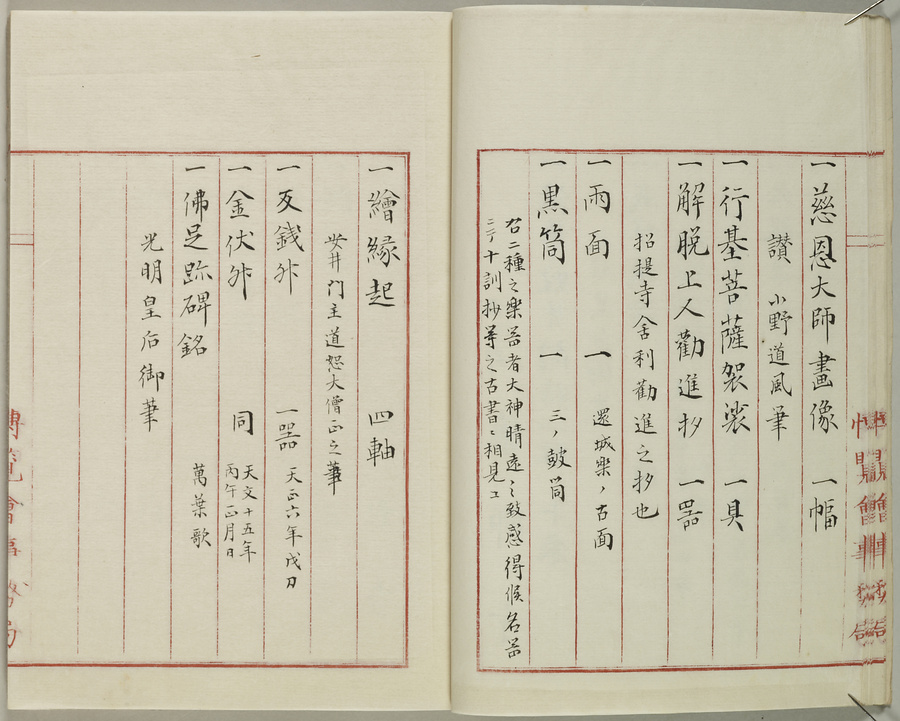 一慈恩大師畫像　一幅
讃　小野道風筆
一行基菩薩袈裟　一具
一解脱上人勸進抄　一器
招提寺舍利勸進之抄也
一雨面　一　還城樂ノ古面
一黒筒　一　三ノ鼓筒
右二種之樂器者大神晴遠之致感得候名器
ニテ十訓抄等之古書ニ相見ユ
一繪縁起　四軸
安井門主道恕大僧正之筆
一反錢舛　一器　天正六年戊刀
一金伏舛　同　天文十五年
丙午正月日
一佛足跡碑銘　萬葉歌
光明皇后御筆
博覽會事務局